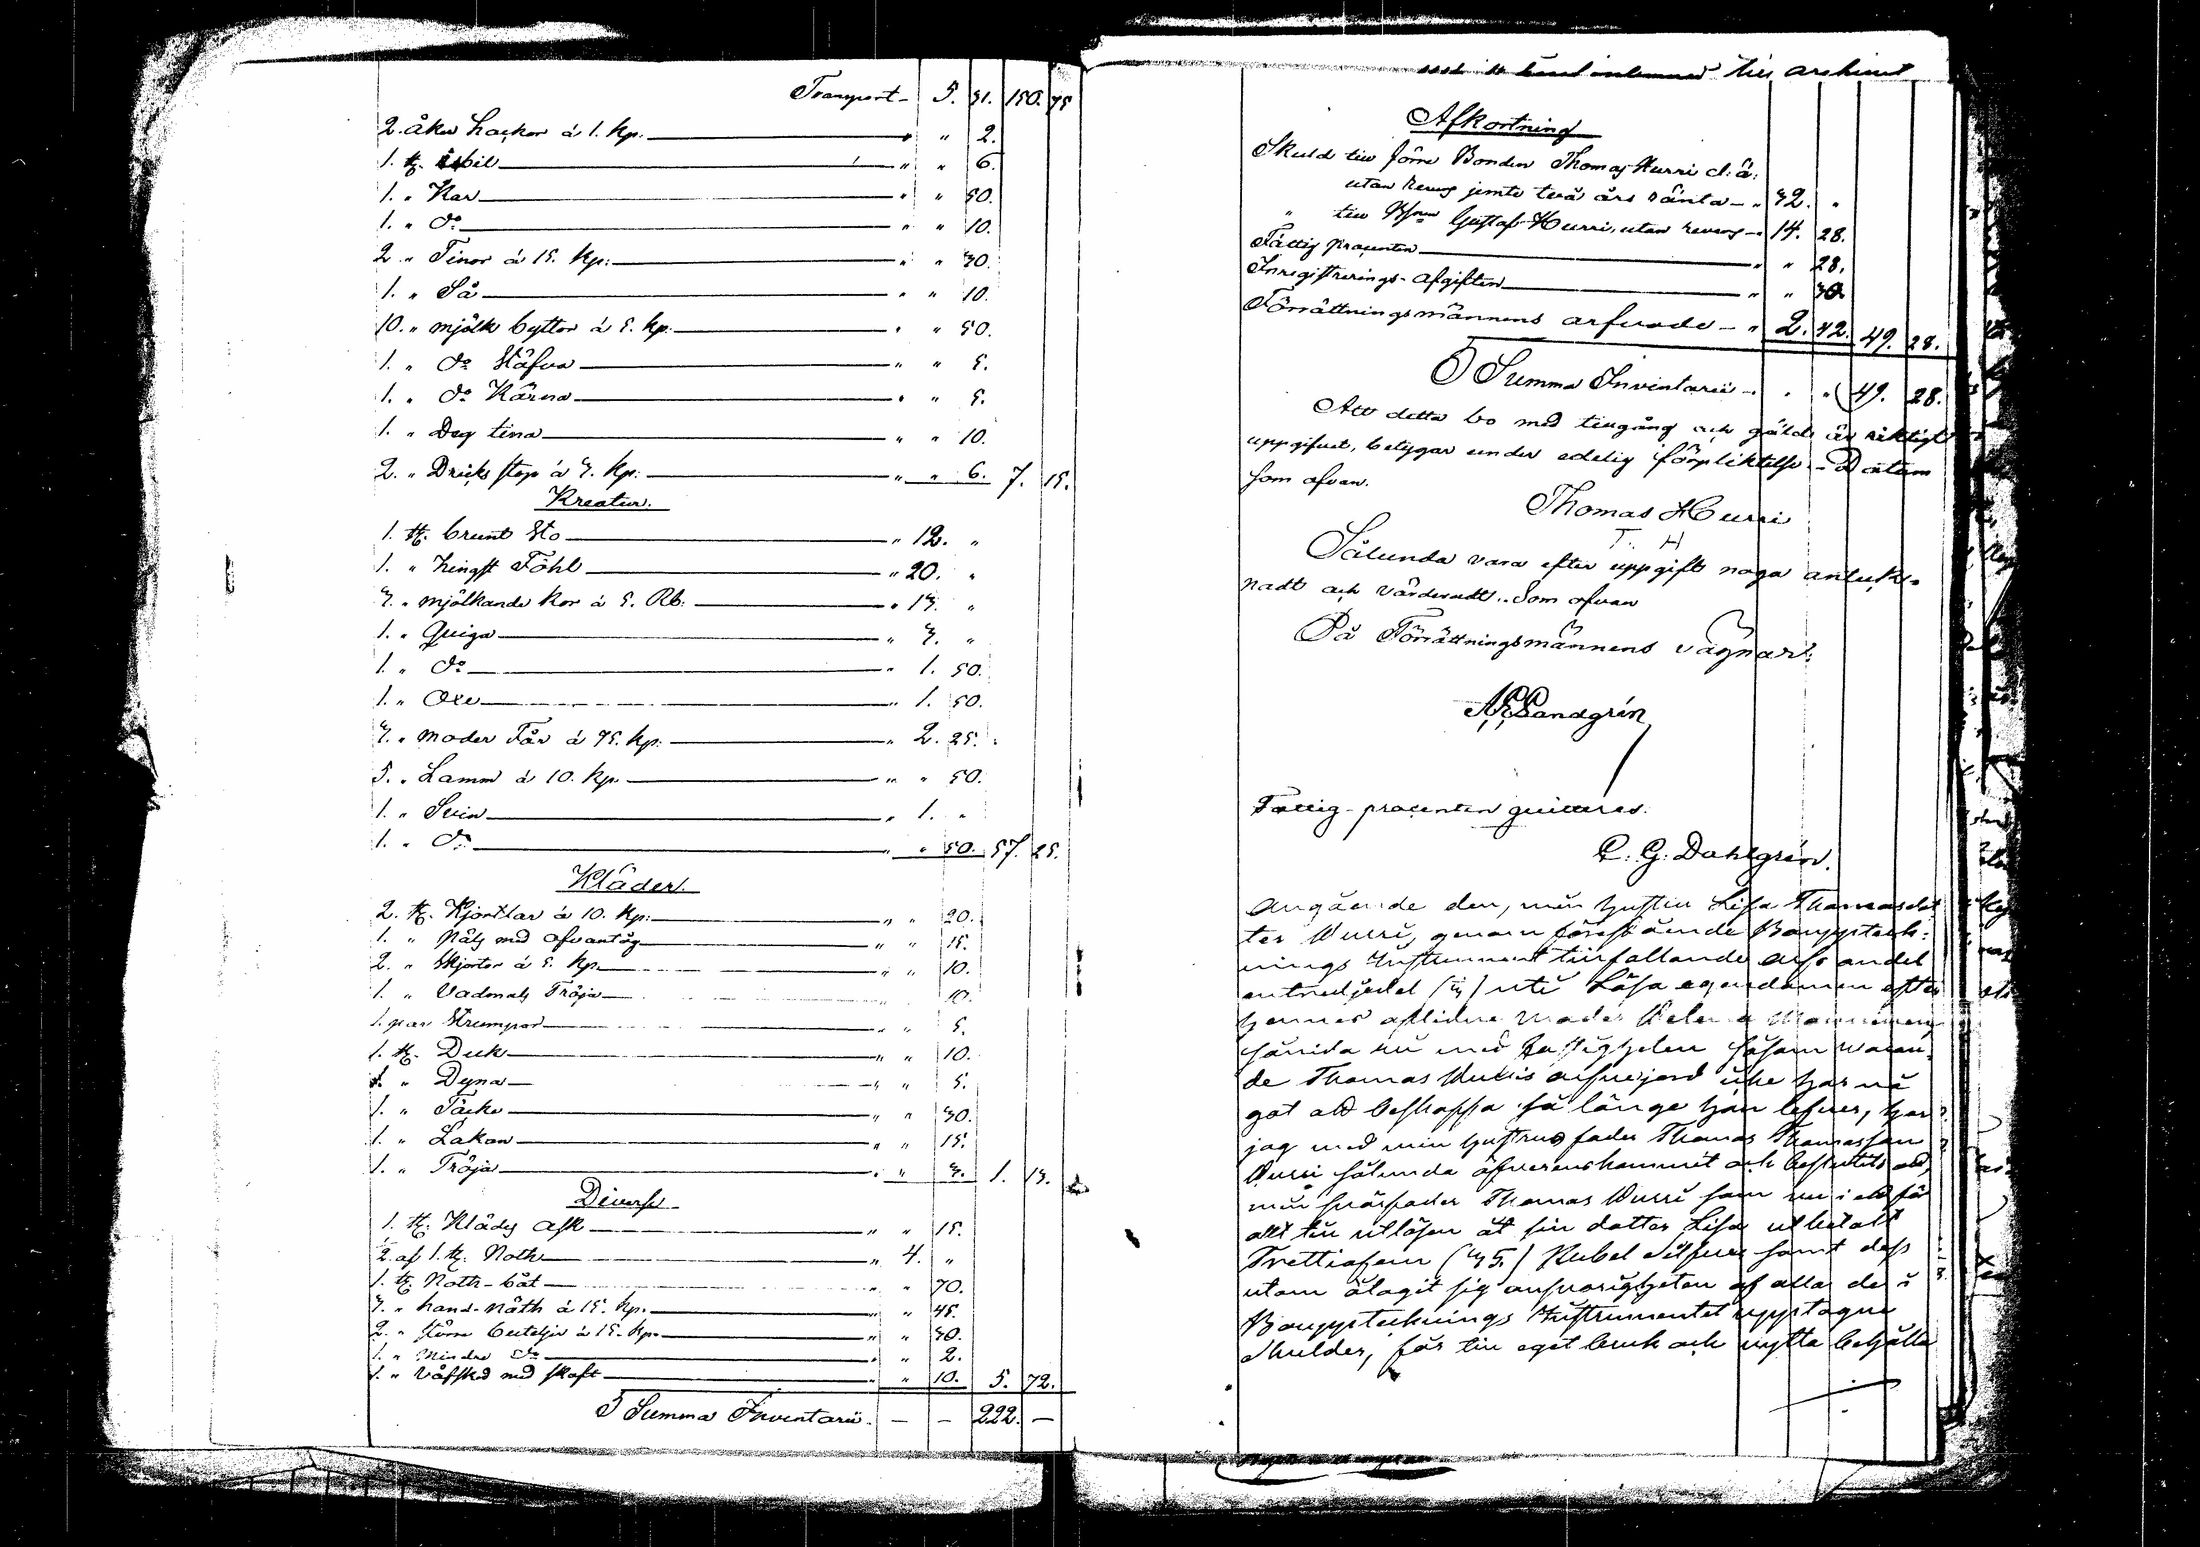 Transport - 5. 31. 150. 75
2. åker hackor á 1. Kp. " " 2.
1. st. bil " " 6.
1. " Kar " " 50.
1. " do " " 10.
2. " Tinor á 15. Kp: " " 30.
1. " Så " " 10.
10. " mjölk byttor á 5. Kp. " " 50.
1. " do Stäfva " " 5.
1. " do Kärna " " 5.
1. " Deg tina " " 10.
2. " Dricks stop á 3. Kp: " " 6. 7. 15.
Kreatur.
1. st. brunt Sto " 12. "
1. " hingst Föhl " 20. "
3. " mjölkande kor á 5. Rb. " 15. "
1. " Quiga " 3. "
1. " do " 1. 50.
1. " Oxe " 1. 50.
3. " moder Får á 75. Kp: " 2. 25.
5. " Lamm á 10. Kp. " " 50.
1. " Svin " 1. "
1. " do " " 50. 57. 25.
Kläder.
2. st. Kjortlar á 10. Kp: " " 20.
1. " Päls med ofvantög " " 15.
2. " Skjortor á 5. Kp. " " 10.
1. " Vadmals Tröja 10.
1. par Strumpor " " 5.
1. st. Duk " " 10.
1. " Dyna " " 5.
1. " Täcke " " 30.
1. " Lakan " " 15.
1. " Tröja " " 3. 1. 13.
Diverse
1. st. Kläds ask " " 15.
2. af 1. st. Noth " 4. "
1. st. Noth-båt " " 70.
3. " hand-Näth á 15. Kp. " " 45.
2. " större buteljer á 15. Kp. " " 30.
1. " Mindre do " " 2.
1. " Väfsked med skaft " " 10. 5. 72.
Summa Inventarii. - - 222. -
till arkivet
Afkortning
Skuld till förre Bonden Thomas Hurri d: ä:
utan revers jemte två års ränta - " 32. "
" till Gustaf Hurri, utan revers - 14. 28.
Fattig procenten " " 28.
Inregistrerings-Afgiften " " 30.
Förrättningsmännens arfvode - " 2. 42. 49. 28.
Summa Inventarii - . " 49. 28.
Att detta bo med tillgång och gäld är riktigt
uppgifvet, betygar under edelig förpliktelse - Datum
som ofvan.
Thomas Hurri
T. H
Sålunda vara efter uppgift noga anteck-
nadt och värderadt. Som ofvan
På Förrättningsmännens vägnar:
Sandgrén
Fattig-procenten quitteras.
C. G. Dahlgrén.
Angående den, min hustru Lisa Thomasdot
ter Hurri, genom förestående Bouppteck-
nings Instrument tillfallande arfs andel
en tredjedel (1/3) uti Lösa egendomen efter
hennes aflidne Moder Helena
hänida nu med fastigheten såsom waran-
de Thomas Hurris arfvejord icke har nå
got att beskaffa så länge han lefver, har
jag med min hustrus fader Thomas Thomasson
Hurri sålunda öfverenskommit och beslutits att,
min svärfader Thomas Hurri som nu i ett för
allt till utlösen åt sin dotter Lisa utbetalt
Trettiofem (35.) Rubel Silfver samt dess
utom ålagit sig ansvarigheten af alla de i
Bouppteknings Instrumentet upptagne
Skulder, får till eget bruk och nytta behålla